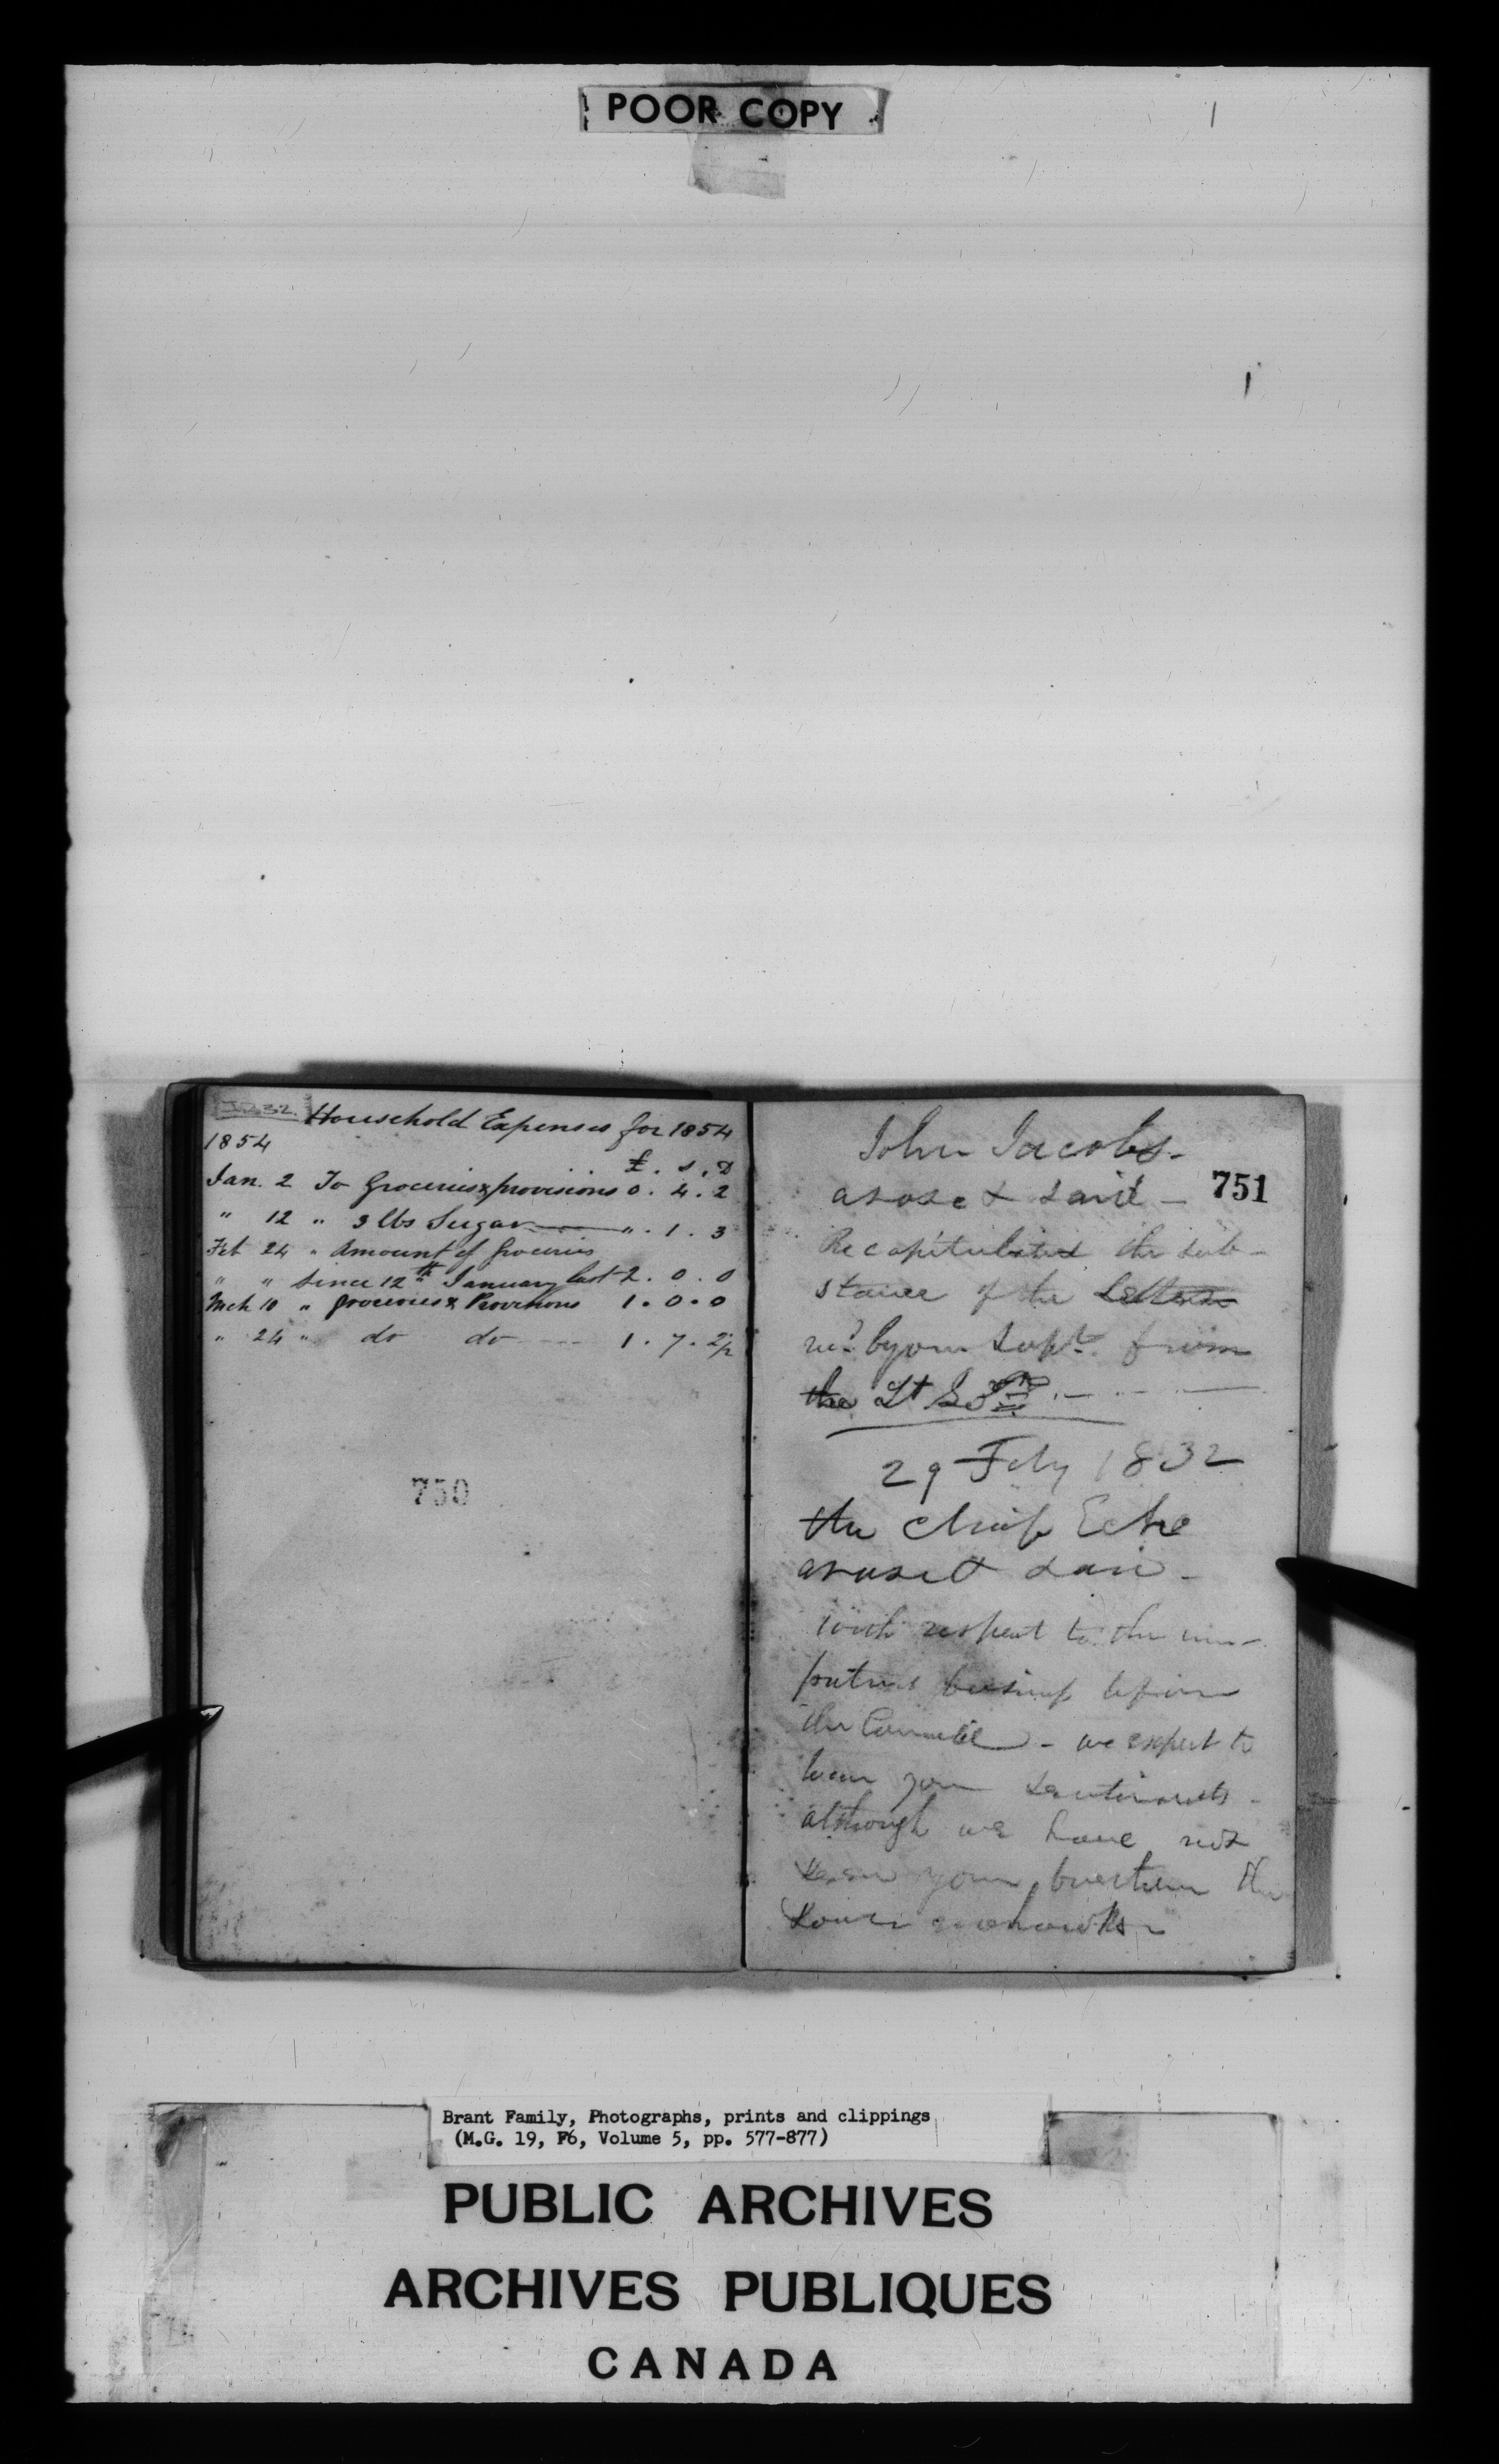 POOR COPY
Household Expenses for 1854
1854
£. s. D
Jan. 2 To Groceries & provisions 0. 4. 2
" 12 " 3 lbs Sugar — ". 1. 3
Feb 24 " Amount of Groceries
" " since 12th January last 2. 0. 0
Mch 10 " groceries & Provisions 1. 0. 0
" 24 " do do 1. 7. 2½
750
John Jacobs.
751
arose & said —
Recapitulated the sub-
stance of the Letters
recd by our Supt. from
the Lt
29 Feby 1832
the chief Echo
arose & said -
with respect to the im-
portant business before
the Council - we expect to
hear your sentiments -
although we have not
seen your brethren the
Lower Mohawks -
Brant Family, Photographs, prints and clippings
(M.G. 19, F6, Volume 5, pp. 577-877)
PUBLIC ARCHIVES
ARCHIVES PUBLIQUES
CANADA